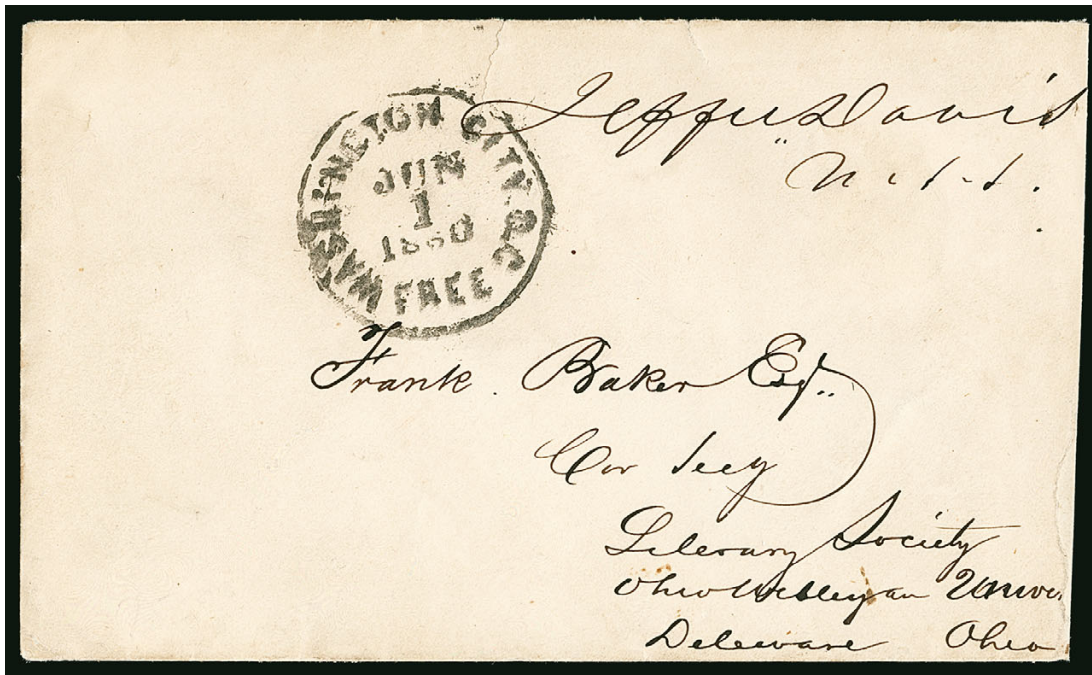 Jeffn Davis
U.S.S.
WASHINGTON CITY. D.C.
JUN
1
1860
FREE
Frank. Baker Esq..
Cor Secy
Literary Society
Ohio Wesleyan Univer
Deleware Ohio